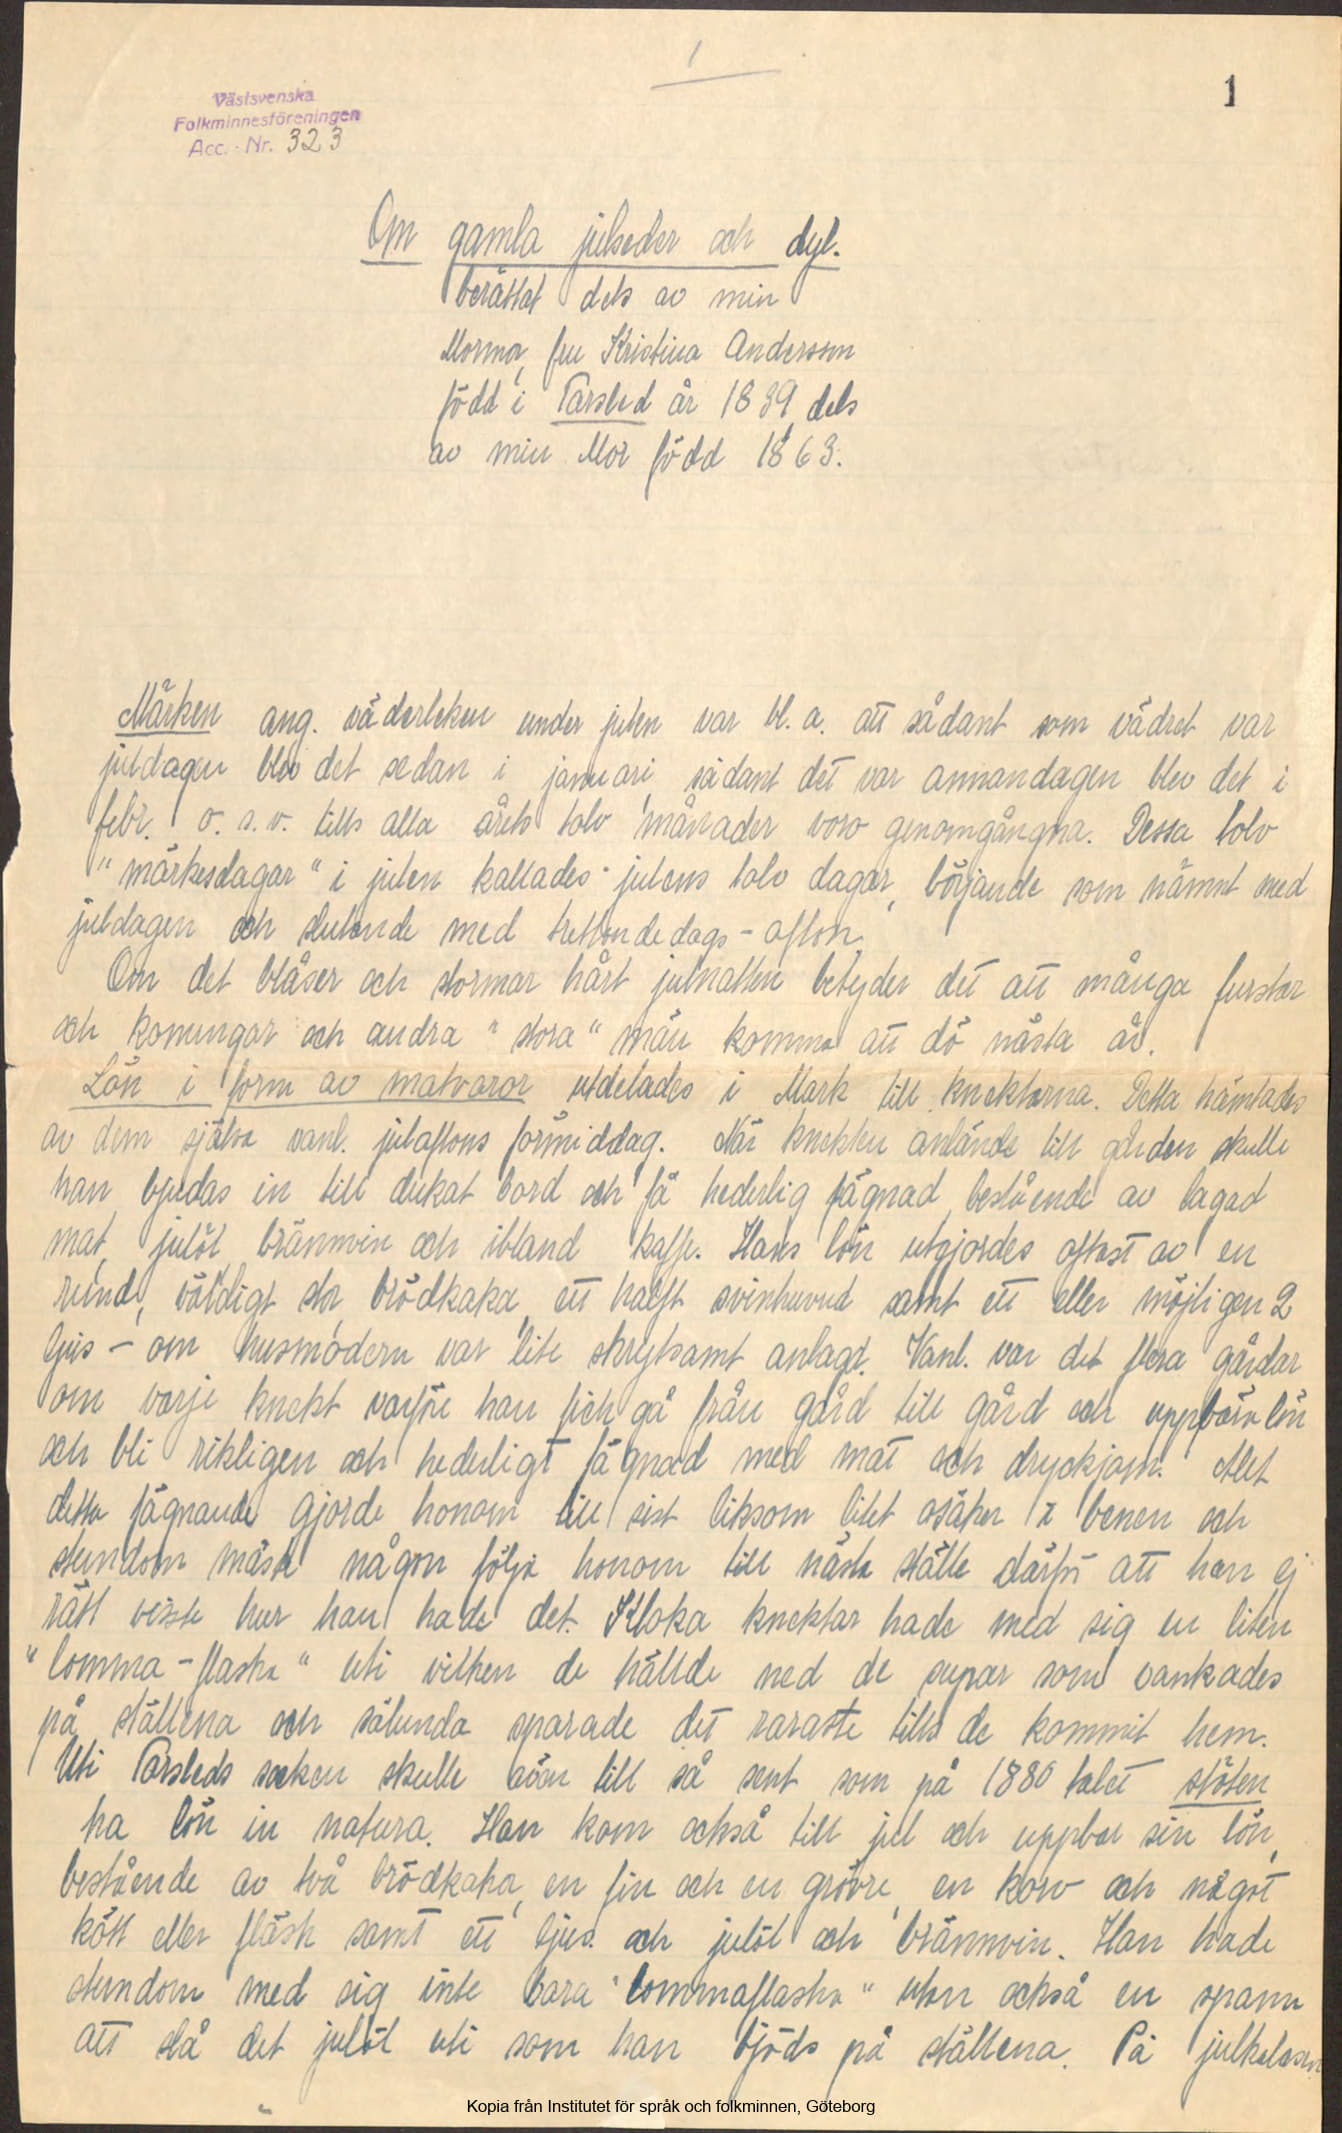 1
1
Västsvenska
Folkminnesföreningen
Acc. - Nr. 323
Om gamla julseder och dyl.
berättat dels av min
Mormor, fru Kristina Andersson
född i Torsled år 1839, dels
av min Mor född 1863.
Märken ang. väderleken under julen var bl. a. att sådant som vädret var
juldagen blev det sedan i januari, sådant det var annandagen blev det i
febr. o. s. v. tills alla årets tolv månader voro genomgångna. Dessa tolv
"märkesdagar" i julen kallades julens tolv dagar, började som nämnt med
juldagen och slutande med trettondedags-afton.
Om det blåser och stormar hårt julnatten betyder det att många furstar
och konungar och andra "stora" män komma att dö nästa år.
Lön i form av matvaror utdelades i Mark till knektarna. Detta hämtades
av dem själva vanl. julaftons förmiddag. När knekten anlände till gården skulle
han bjudas in till dukat bord och få hederlig fägnad bestående av lagad
mat, julöl, brännvin och ibland kaffe. Hans lön utgjordes oftast av en
rund, väldigt stor brödkaka, ett halft svinhuvud samt ett eller möjligen 2
ljus - om husmodern var lite skrytsamt anlagd. Vanl. var det flera gårdar
om varje knekt varför han fick gå från gård till gård och uppbära lön
och bli rikligen och hederligt fägnad med mat och dryckjom. Allt
detta fägnande gjorde honom till sist liksom litet osäker i benen och
stundom måste någon följa honom till nästa ställe därför att han ej
rätt visste hur han hade det. Kloka knektar hade med sig en liten
"lomma-flaska" uti vilken de hällde ned de supar som vankades
på ställena och sålunda sparade det raraste tills de kommit hem.
Uti Torsleds socken skulle även till så sent som på 1880 talet stöten
ha lön in natura. Han kom också till jul och uppbar sin lön,
bestående av två brödkaka, en fin och en grövre, en korv och något
kött eller fläsk samt ett ljus och julöl och brännvin. Han hade
stundom med sig inte bara "lommaflaska" utan också en spann
att slå det julöl uti som han bjöds på ställena. På julkalasen
Kopia från Institutet för språk och folkminnen, Göteborg